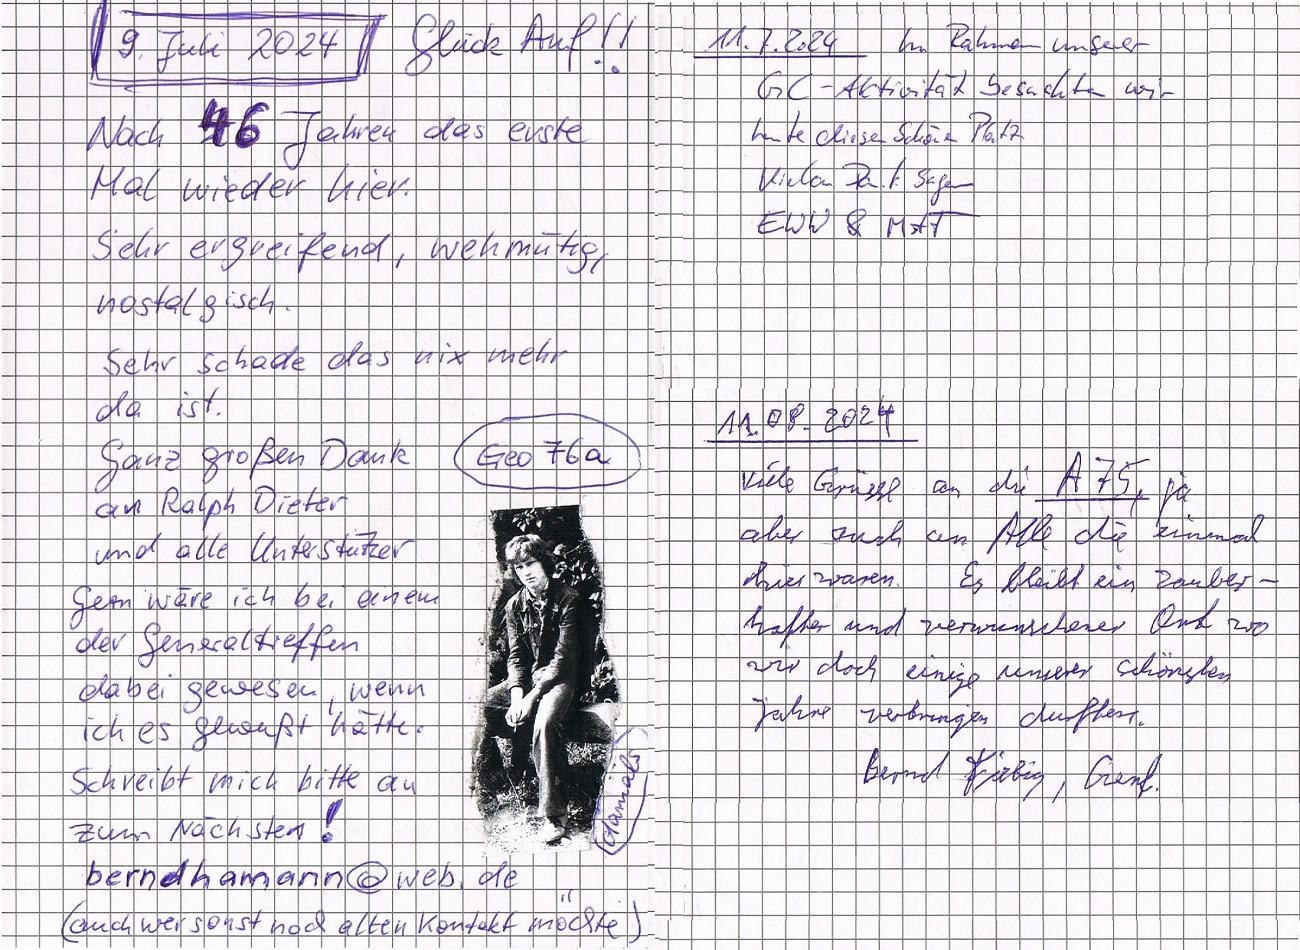 9. Juli 2024 Glück Auf!!
Nach 46 Jahren das erste
Mal wieder hier.
Sehr ergreifend, wehmütig,
nostalgisch.
Sehr schade das nix mehr
da ist.
Ganz großen Dank
an Ralph Dieter
und alle Unterstützer
Geo 76a
Gern wäre ich bei einem
der Generaltreffen
dabei gewesen, wenn
ich es gewußt hätte.
Schreibt mich bitte an
zum Nächsten!
damals
berndhamann@web.de
(auch wer sonst noch alten Kontakt möchte)
11.7.2024 Im Rahmen unserer
GC-Aktivität besuchten wir
heute diesen schönen Platz
Vielen Dank sagen
EWW & MAT
11.08.2024
Viele Grüsse an die A75, ja
aber auch an Alle die einmal
hier waren. Es bleibt ein zauber-
hafter und verwunschener Ort wo
wir doch einige unserer schönsten
Jahre verbringen durften.
Bernd Genf.